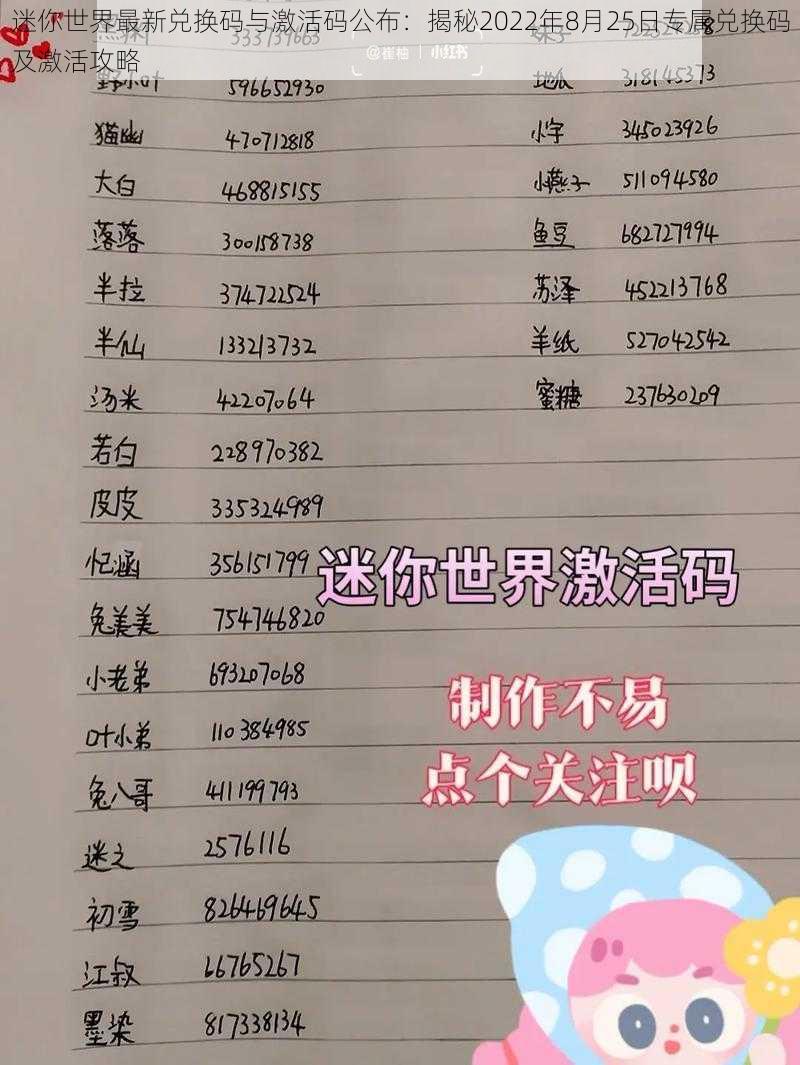 迷你世界最新兑换码与激活码公布：揭秘2022年8月25日专属兑换码
及激活攻略
@崔柚 | 小红书
野小叶 596652930
地瓜 318145373
猫幽 470712818
小字 345023926
大白 468815155
小燕子 511094580
落落 300158738
鱼豆 682727994
半拉 374722524
苏泽 452213768
半仙 133213732
羊纸 527042542
汤米 42207064
蜜糖 237630209
若白 228970382
皮皮 335324989
忆涵 356151799
迷你世界激活码
兔美美 754746820
小老弟 693207068
制作不易
叶小弟 110384985
点个关注呗
兔八哥 411199793
迷之 2576116
初雪 826469645
江叔 66765267
墨染 817338134